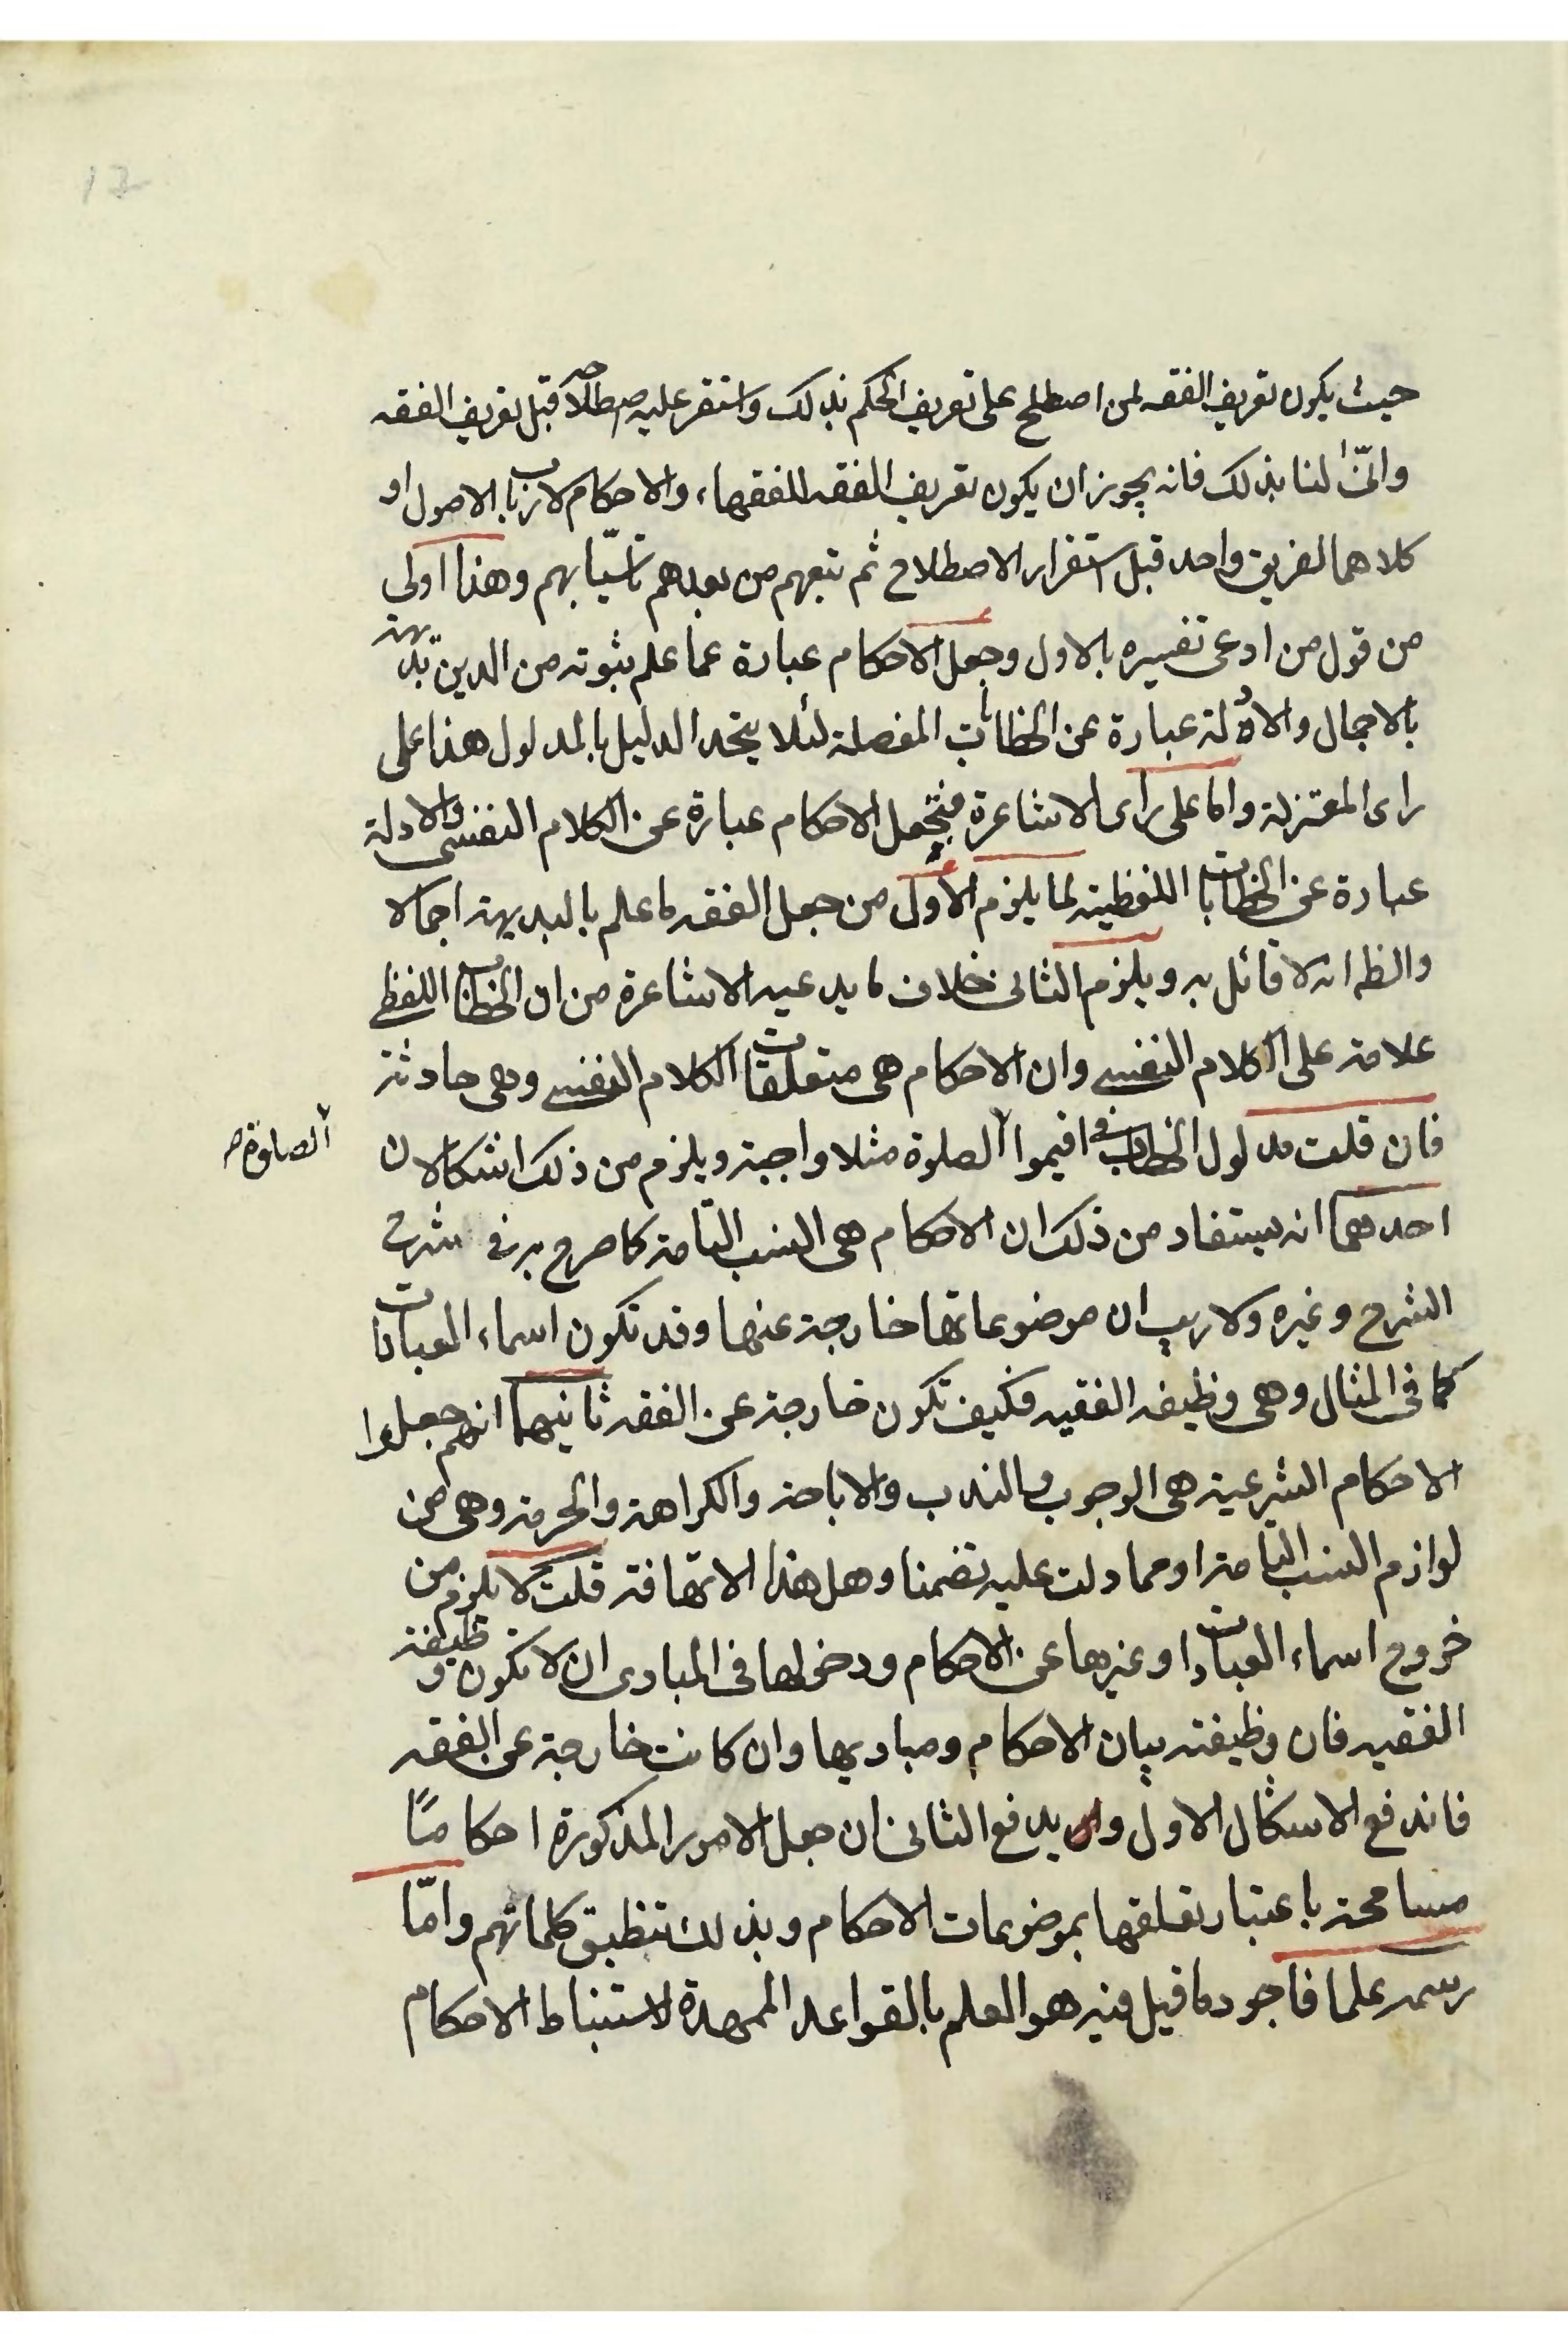 حيث يكون تعريف الفقه لمن اصطلح على تعريف الحكم بذلك واستقر عليه اصطلاحه قبل تعريف الفقه
وانّٰى لنا بذلك فانه يجوز ان يكون تعريف الفقه للفقهاء والاحكام لارباب الاصول او
كلاهما لفريق واحد قبل استقرار الاصطلاح ثم تبعهم من بعدهم تاسّيا بهم وهذا اولى
من قول من ادعى تفسيره بالاول وجعل الاحكام عبارة عما علم ثبوته من الدين بديهة
بالاجمال والادلة عبارة عن الخطابات المفصلة لئلا يتحد الدليل بالمدلول هذا على
راى المعتزلة واما على راى الاشاعرة فتجعل الاحكام عبارة عن الكلام النفسى والادلة
عبارة عن الخطابات اللفظية لما يلزم الأول من جعل الفقه ما علم بالبديهة اجمالا
والظ انه لا قائل به ويلزم الثانى خلاف ما يدعيه الاشاعرة من ان الخطاب اللفظى
علامة على الكلام النفسى وان الاحكام هى متعلقات الكلام النفسى وهى حادثة
فان قلت مدلول الخطاب فى اقيموا الصلوة مثلا واجبة ويلزم من ذلك اشكالان
الصلوة
احدهما انه يستفاد من ذلك ان الاحكام هى النسب التامة كما صرح به فى شرح
الشرح وغيره ولا ريب ان موضوعاتها خارجة عنها وقد تكون اسماء العبادات
كما فى المثال وهى وظيفه الفقيه فكيف تكون خارجة عن الفقه ثانيهما انهم جعلوا
الاحكام الشرعية هى الوجوب والندب والاباحة والكراهة والحرمة وهى من
لوازم النسب التامة او مما دلت عليه تضمنا وهل هذا الا تهافة قلت لا يلزم من
خروج اسماء العبادات او غيرها عن الاحكام ودخولها فى المبادى ان لا تكون وظيفة
الفقيه فان وظيفته بيان الاحكام ومباديها وان كانت خارجة عن الفقه
فاندفع الاشكال الاول و يدفع الثانى ان جعل الامور المذكورة احكامًا
مسامحة باعتبار تعلقها بموضوعات الاحكام وبذلك تنطبق كلماتهم وامّا
رسمه علما فاجود ما قيل فيه هو العلم بالقواعد الممهدة لاستنباط الاحكام